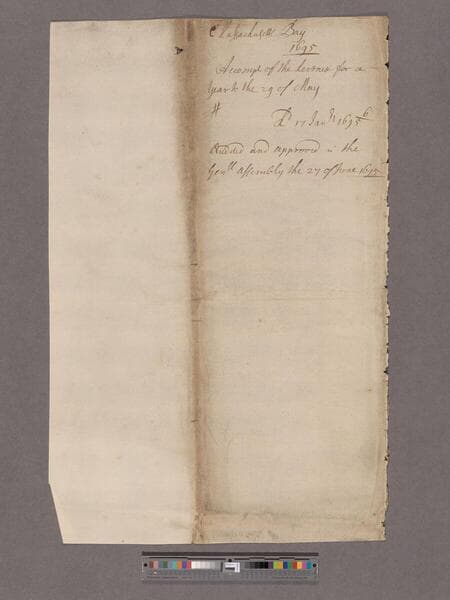 Massachusetts Bay
1695
Accompt of the Revenue for a
year to the 29 of May
#
Rd 17 Jan 1695/6
Audited and approved in the
Genll Assembly the 27 of June 1695